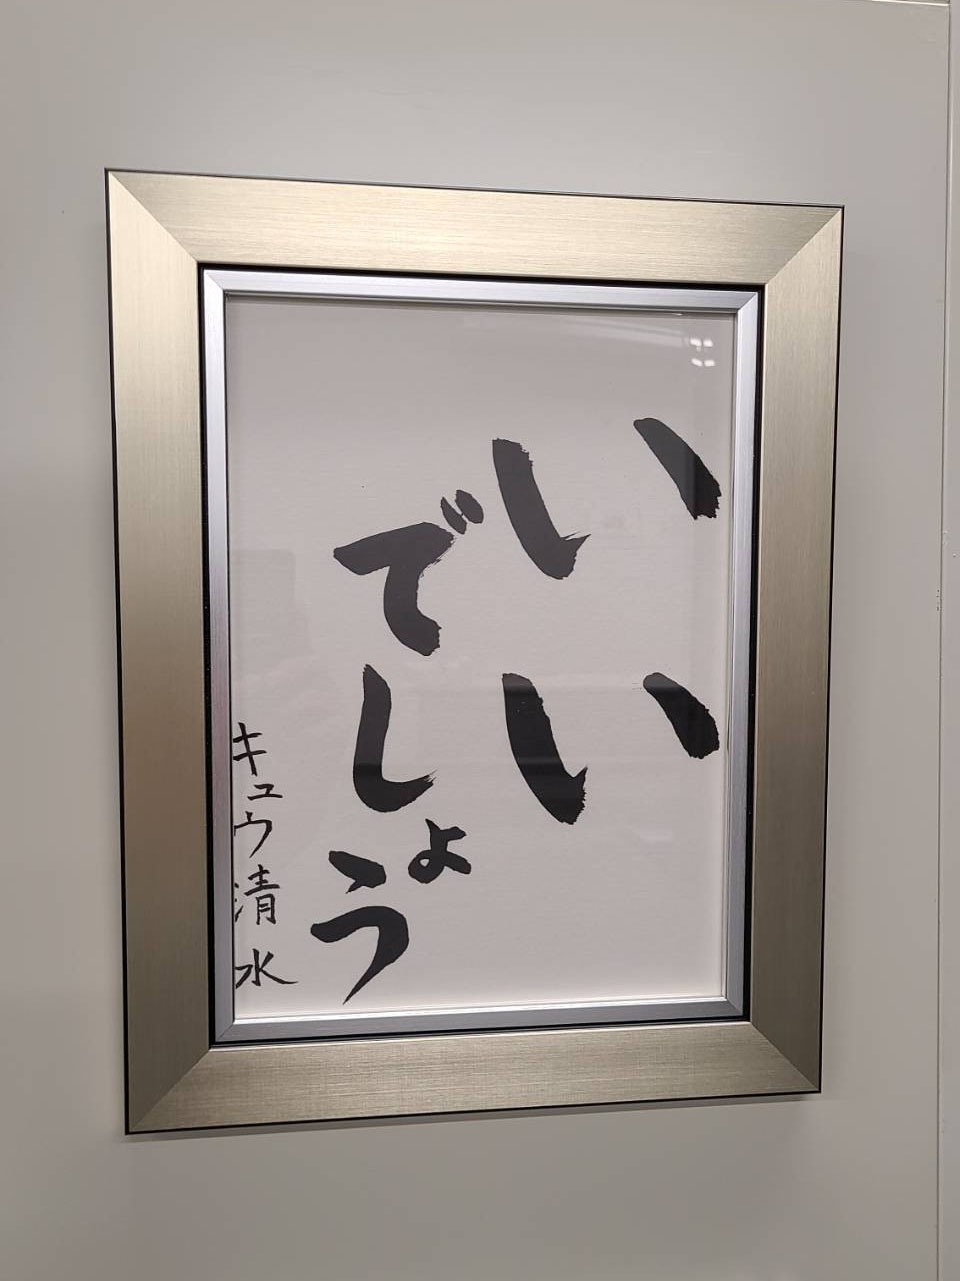 いい
でしょう
キュウ清水